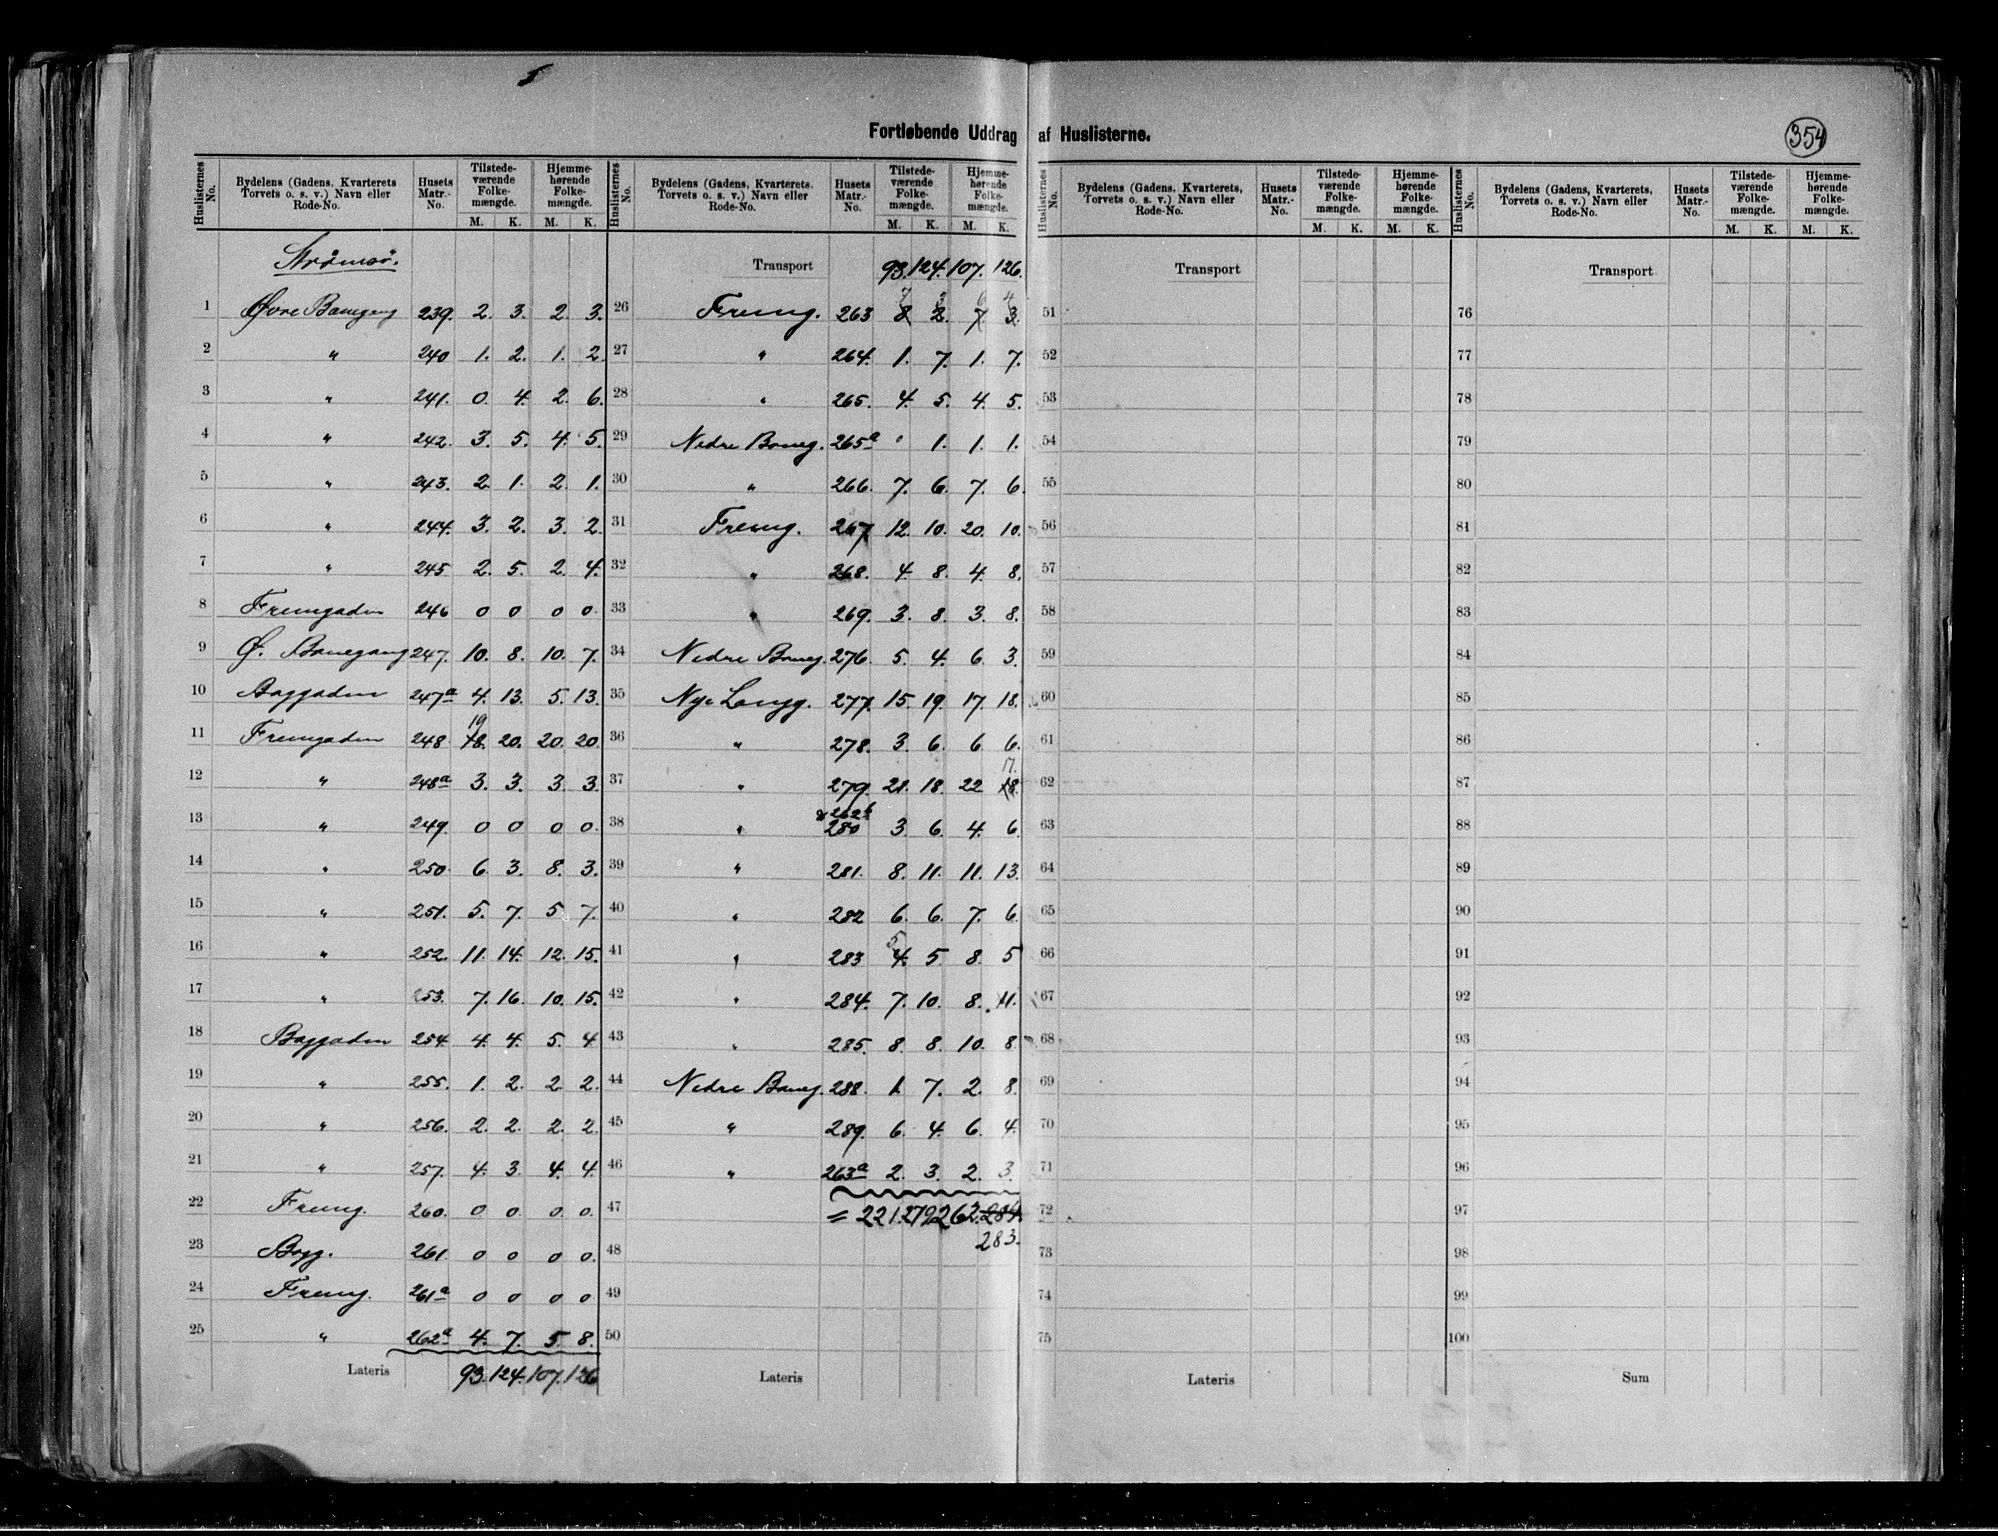 Fortløbende Uddrag af Huslisterne.
354
Huslisternes No. | Bydelens (Gadens, Kvarterets Torvets o. s. v.) Navn eller Rode-No. | Husets Matr.-No. | Tilstedeværende Folkemængde. M. K. | Hjemmehørende Folkemængde. M. K.
Strømsö.
1 Øvre Banegang 239. 2. 3. 2. 3.
2 " 240 1. 2. 1. 2.
3 " 241. 0. 4. 2. 6.
4 " 242. 3. 5. 4. 5.
5 " 243. 2. 1. 2. 1.
6 " 244. 3. 2. 3. 2.
7 " 245. 2. 5. 2. 4.
8 Fremgaden 246 0 0 0 0.
9 Ø. Banegang 247. 10. 8. 10. 7.
10 Baggaden 247a 4. 13. 5. 13.
19
11 Fremgaden 248. 18. 20. 20. 20.
12 " 248a 3. 3. 3. 3.
13 " 249. 0 0 0 0.
14 " 250. 6. 3. 8. 3.
15 " 251. 5. 7. 5. 7.
16 " 252. 11. 14. 12. 15.
17 " 253. 7. 16. 10. 15.
18 Baggaden 254. 4. 4. 5. 4
19 " 255. 1. 2. 2. 2.
20 " 256. 2. 2. 2. 2.
21 " 257. 4. 3. 4. 4.
22 Fremg. 260. 0 0 0 0.
23 Bagg. 261. 0 0 0 0.
24 Fremg. 261a 0 0 0 0.
25 " 262a 4. 7. 5. 8.
Lateris 93. 124. 107. 126
Huslisternes No. | Bydelens (Gadens, Kvarterets, Torvets o. s. v.) Navn eller Rode-No. | Husets Matr.-No. | Tilstedeværende Folkemængde. M. K. | Hjemmehørende Folkemængde. M. K.
Transport 93. 124. 107. 126.
7 3 6 4
26 Fremg. 263 8 2. 7 3.
27 " 264. 1. 7. 1. 7.
28 " 265. 4. 5. 4. 5.
29 Nedre Baneg. 265a 0 1. 1. 1.
30 " 266. 7. 6. 7. 6.
31 Fremg. 267 12. 10. 20. 10.
32 " 268. 4. 8. 4. 8.
33 " 269. 3. 8. 3. 8.
34 Nedre Baneg. 276. 5. 4. 6. 3.
35 Nye Langg. 277. 15. 19. 17. 18.
36 " 278. 3. 6. 6. 6.
17.
37 " 279. 21. 18. 22. 18.
& 262b
38 " 280 3. 6. 4. 6.
39 " 281. 8. 11. 11. 13.
40 " 282 6. 6. 7. 6.
5
41 " 283 4. 5 8. 5
42 " 284. 7. 10. 8. 11.
43 " 285. 8. 8. 10. 8.
44 Nedre Baneg. 288. 1. 7. 2. 8.
45 " 289. 6. 4. 6. 4.
46 " 263a 2. 3. 2. 3.
47 = 221. 279. 262. 284.
283.
48
49
50
Lateris
Huslisternes No. | Bydelens (Gadens, Kvarterets, Torvets o. s. v.) Navn eller Rode-No. | Husets Matr.-No. | Tilstedeværende Folkemængde. M. K. | Hjemmehørende Folkemængde. M. K.
Transport
51
52
53
54
55
56
57
58
59
60
61
62
63
64
65
66
67
68
69
70
71
72
73
74
75
Lateris
Huslisternes No. | Bydelens (Gadens, Kvarterets, Torvets o. s. v.) Navn eller Rode-No. | Husets Matr.-No. | Tilstedeværende Folkemængde. M. K. | Hjemmehørende Folkemængde. M. K.
Transport
76
77
78
79
80
81
82
83
84
85
86
87
88
89
90
91
92
93
94
95
96
97
98
99
100
Sum